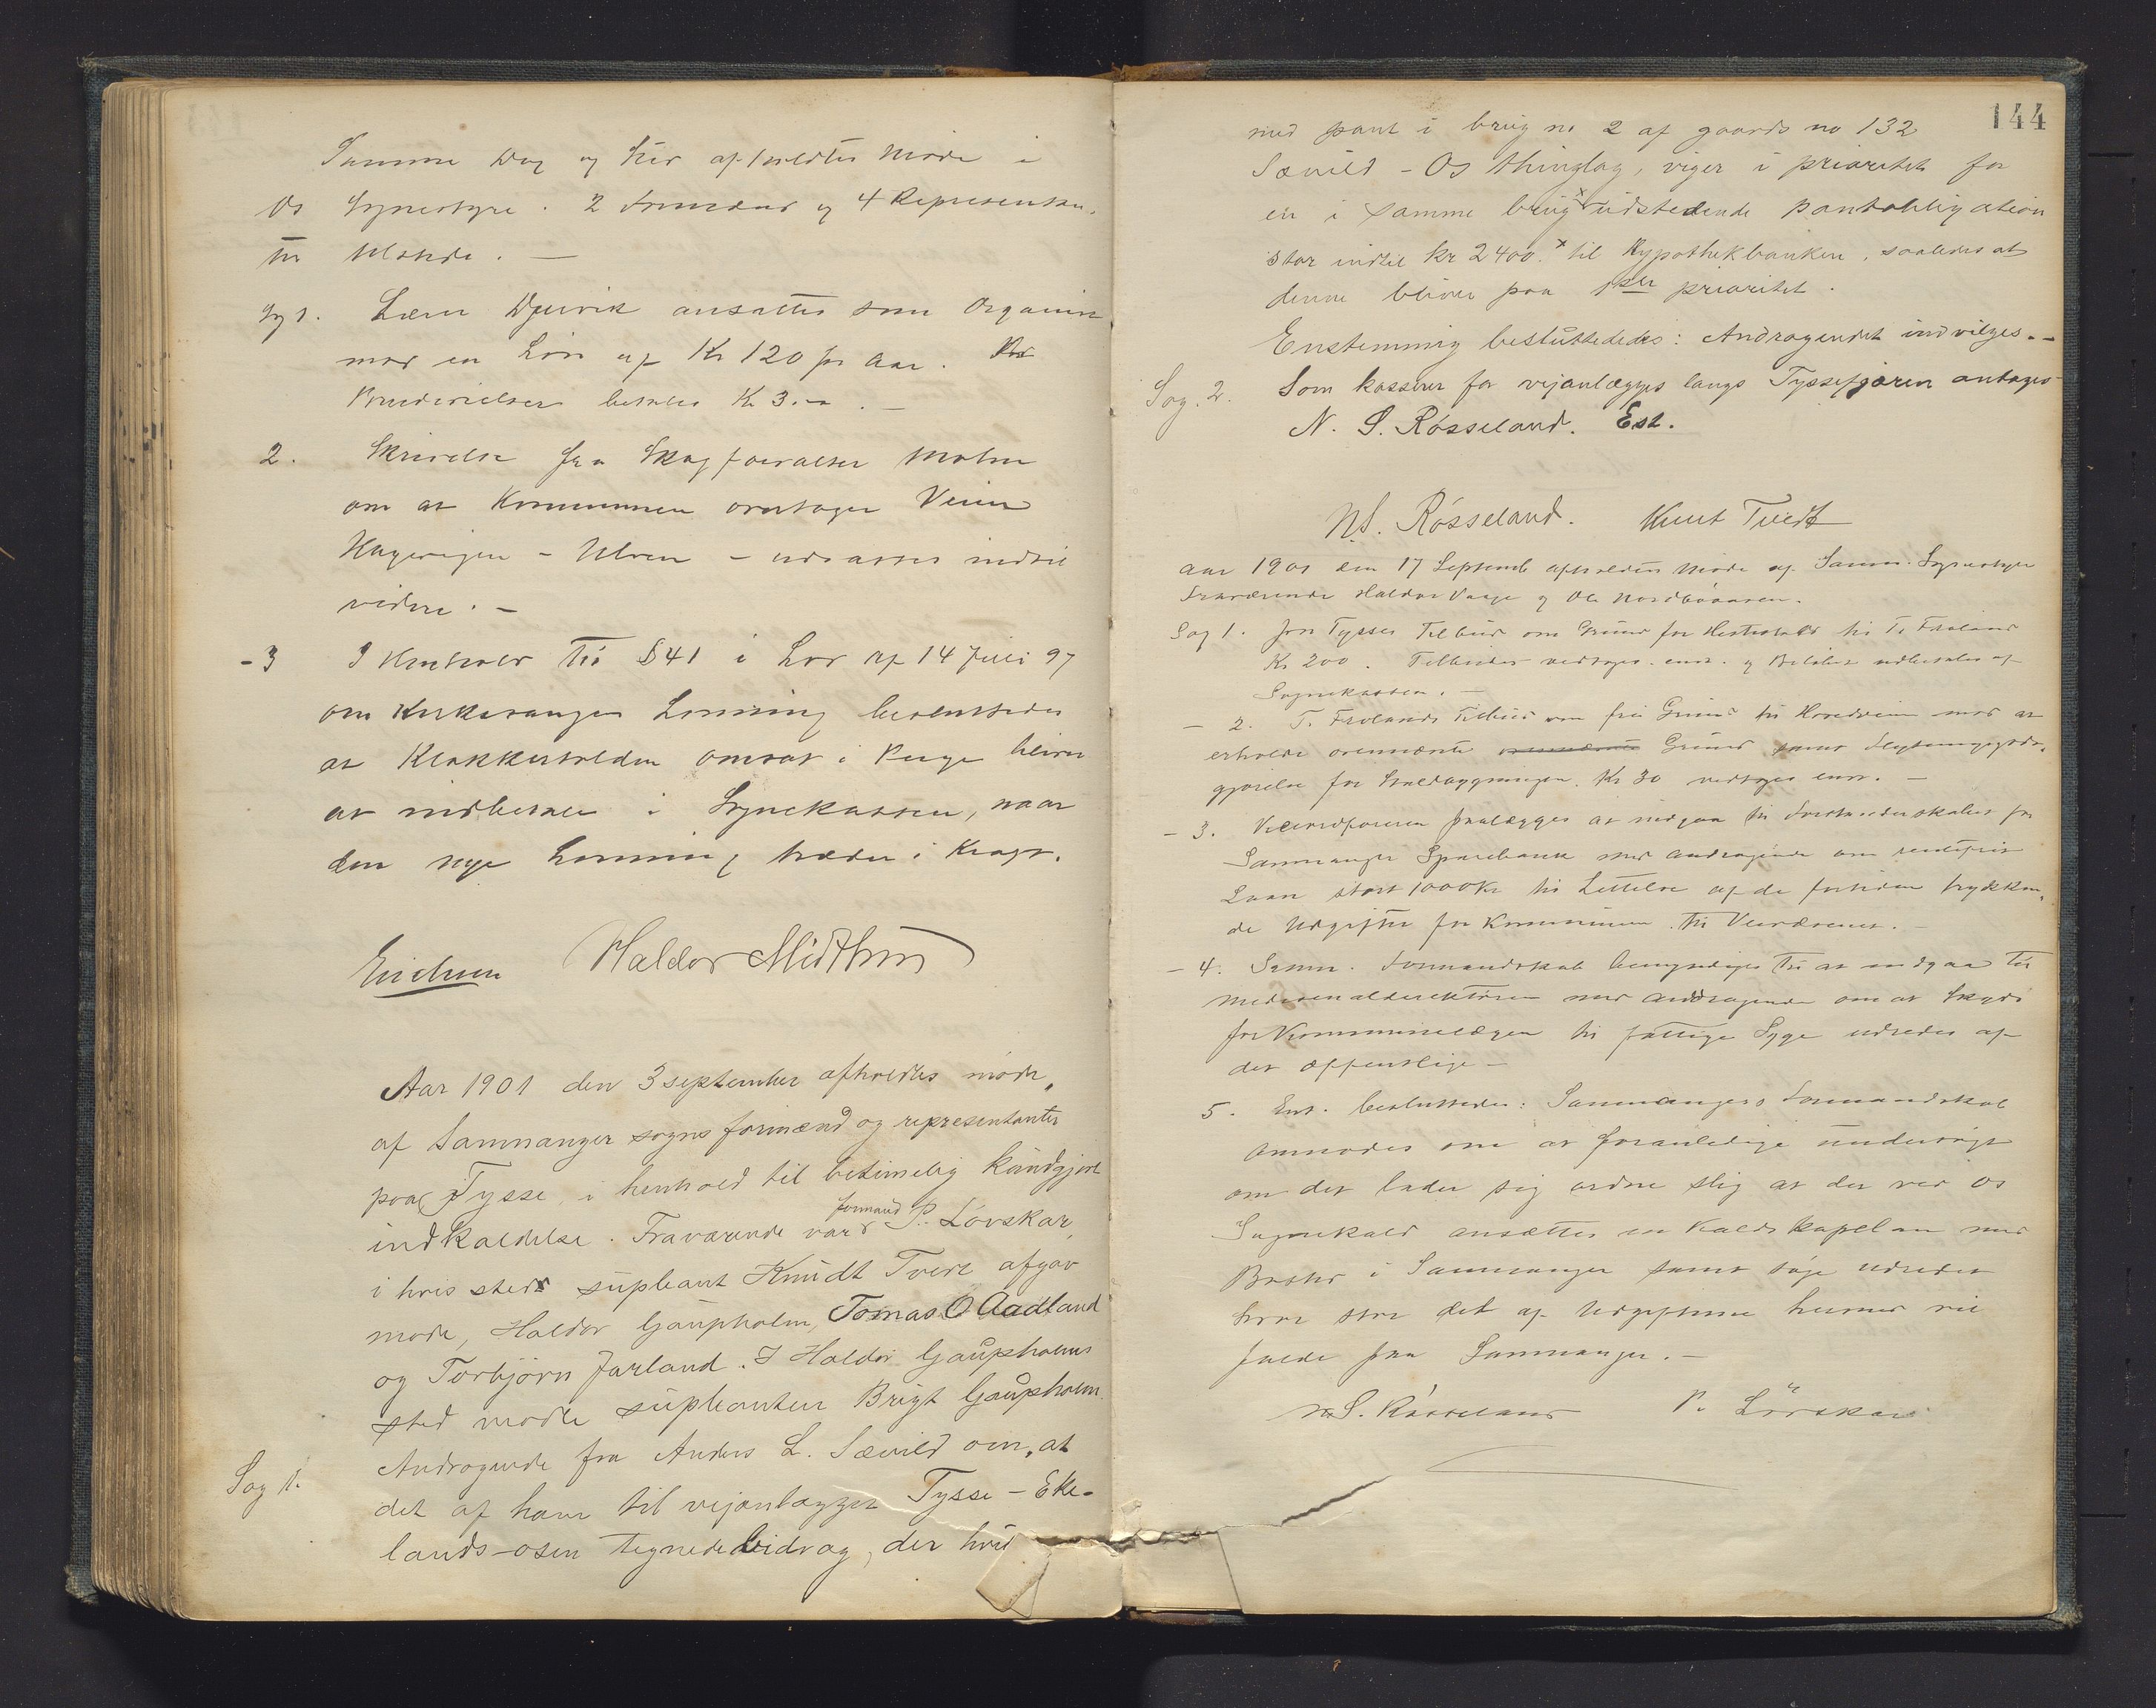 Samme Dag og Aar afholdtes Møde i
Os Sognestyre. 2 Formænd og 4 Repræsentan-
ter Mødte. —
Sag 1. Djuvik ansattes som Organist
mod en Løn af Kr 120 pr Aar.
betales Kr 3.–
2. Skrivelse fra Skogforvalter
om at Kommunen overtager Veien
Hagevigen – Ulven – udsættes indtil
videre. –
-3 I Henhold til § 41 i Lov af 14 Juli 97
om Kirkesangen Lønning besluttedes
at Klokkertolden omsat i Penge bliver
at indbetale i Sognekassen, naar
den nye Lønning træder i Kraft.
Erichsen Haldor Midthun
Aar 1901 den 3 september afholdtes møde,
af Samnanger sogns formænd og representanter
paa Tysse, i henhold til betimelig kundgjort
indkaldelse. Fraværende var formand P. Løvskar,
i hvis sted supleant Knudt Tvedt afgav
møde, Haldor Gaupholm, Tomas O Aadland
og Torbjørn Jarland. I Haldor Gaupholms
sted mødte supleanten Brigt Gaupholm.
Sag 1. Andragende fra Anders L. Sævild om, at
det af ham til vejanlægget Tysse – Eke-
lands-osen tegnede bidrag, der hvil
144
med pant i brug no 2 af gaards no 132
Sævild – Os thinglag, viger i prioritet for
en i samme brug x udstedende pantobligation
stor indtil kr 2400. x til Hypothekbanken, saaledes at
denne bliver paa 1ste prioritet.
Enstemmig besluttededes: Andragendet indvilges. –
Sag. 2. Som kasserer for vejanlægges langs Tyssefjøren antages
N. S. Røsseland. Est.
N.S. Røsseland. Knut Tvedt
Aar 1901 den 17 Septemb afholdtes Møde af Samn. Sognestyre
Fraværende Haldor Vaage og Ole Nordbø
Sag 1. Jon Tysses Tilbud om Grund for Hestestald til T. Frøland
Kr 200. Tilbudet vedtages enst. og Beløbet udbetales af
Sognekassen. –
– 2. T. Frølands Tilbud om fri Grund til Hovedveien mod at
erholde ovennævnte Grund samt Flytningsgodt-
gjørelse for Staldbygningen Kr 30 vedtages enst. –
– 3. Viceordføreren paalægges at indgaa til Forstanderskabet for
Samnanger Sparebank med andragende om rentefrit
Laan stort 1000 Kr til Lettelse af de fortiden trykken-
de Udgifter for Kommunen til Veivæsenet. –
– 4. Samn. Formandskab bemyndiges til at indgaa til
Medicinaldirektøren med Anddragende om at Skyds
for Kommunelægen til fattige Syge udredes af
det offentlige –
5. Enst. besluttedes: Samnangers Formandskab
anmodes om at foranledige undersøgt
om det lader sig ordne slig at der ved Os
Sognekald ansættes en Kaldskapelan med
Bosted i Samnanger samt søge udredet
hvor stor del af Udgifterne herved vil
falde paa Samnanger. –
N.S. Røsseland P. Lövskar